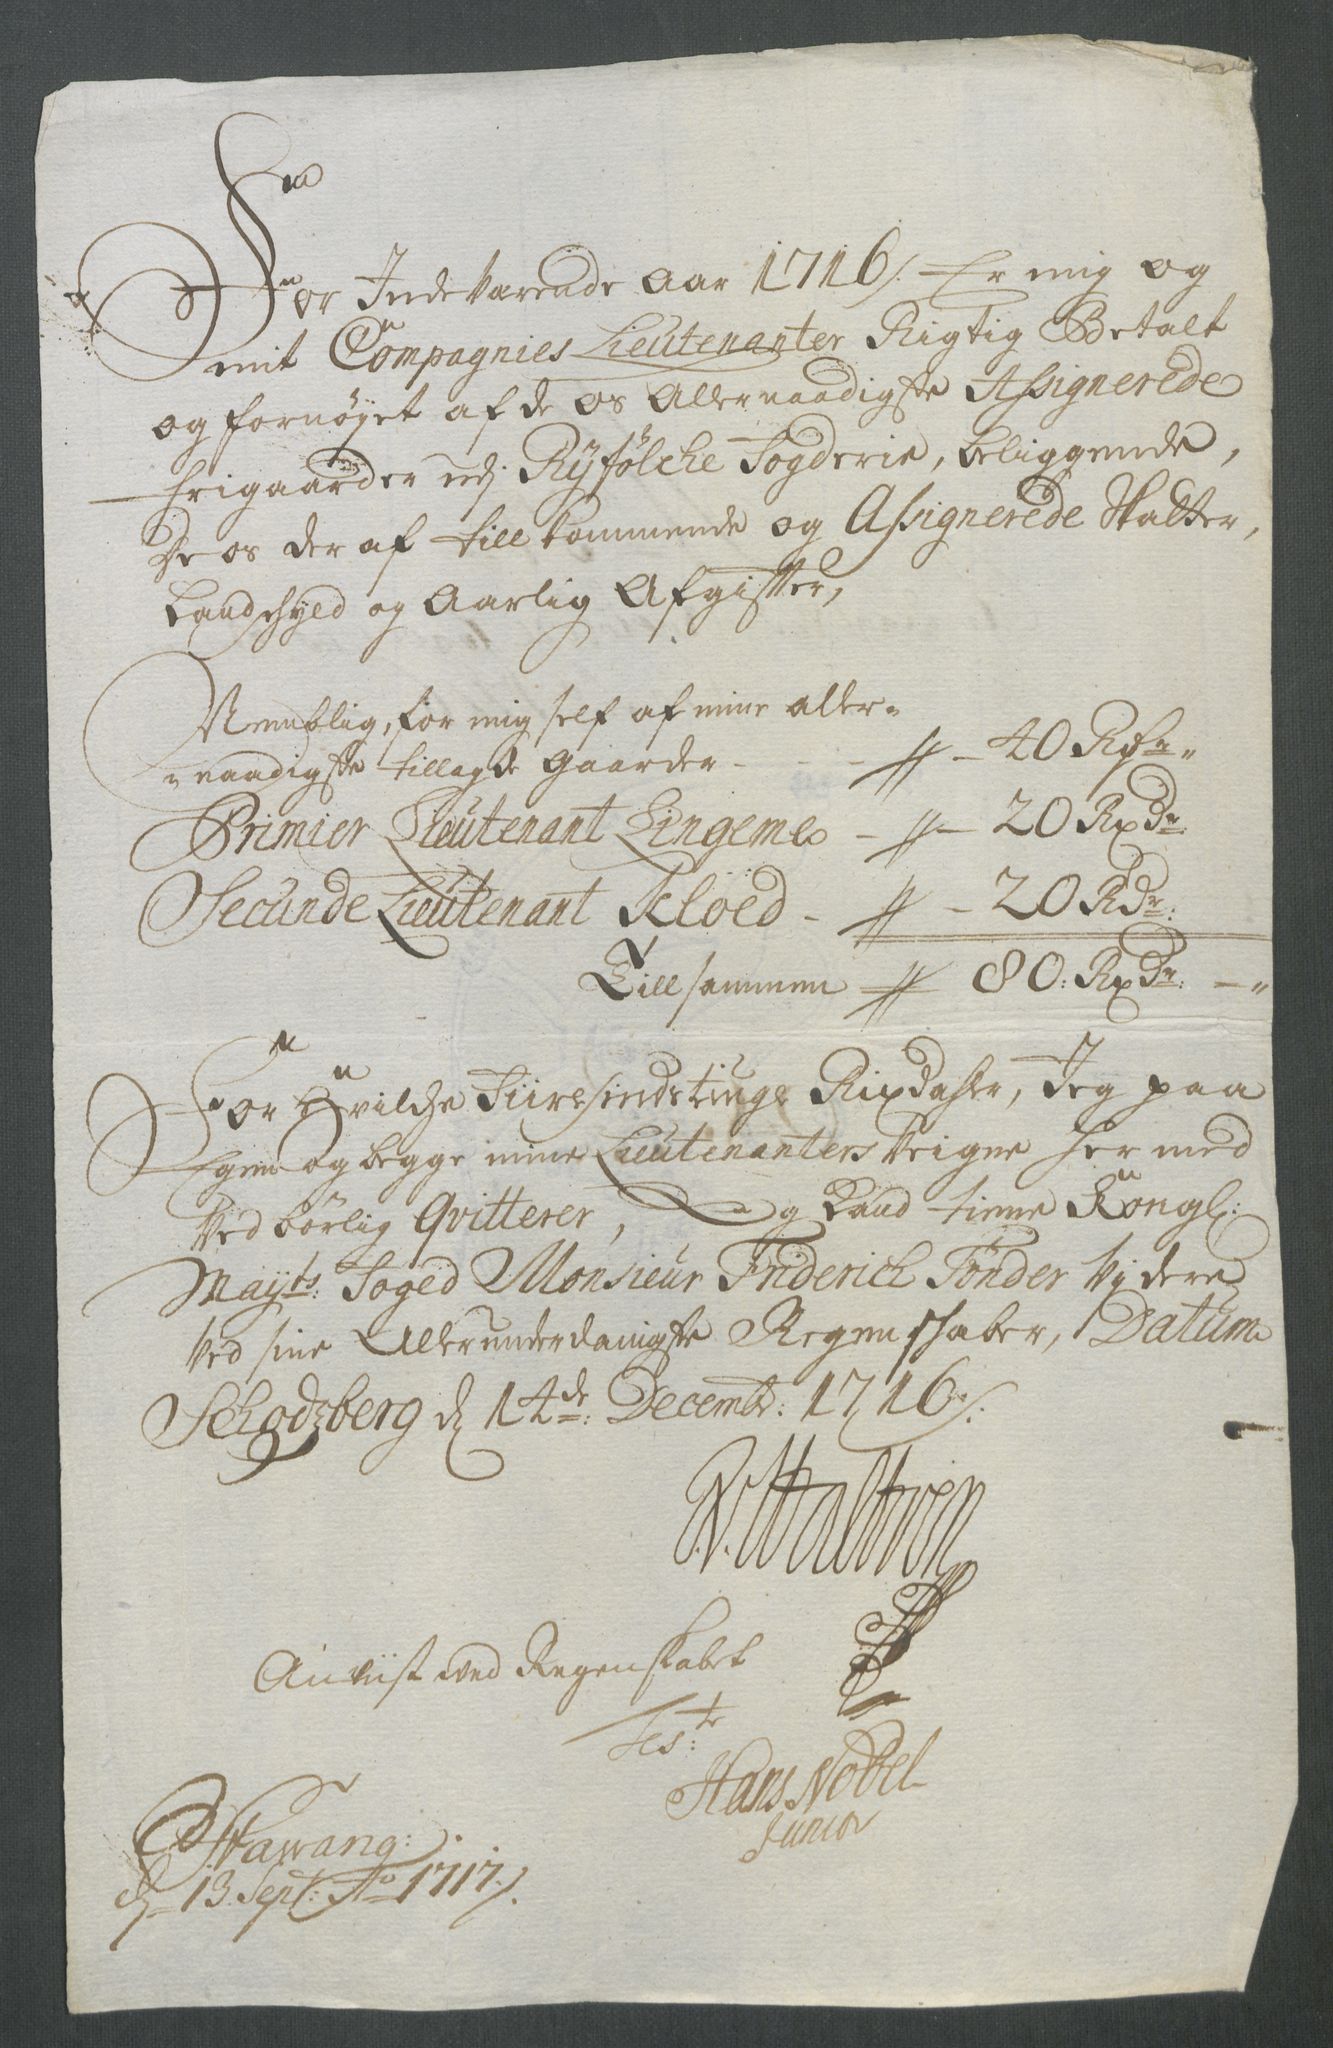 For Indeværende Aar 1716/. Er mig og
mit Compagnies Lieutenanter Rigtig Betalt
og fornöyet af de os Allernaadigste Assignerede
frigaarder udj Ryfölche Fogderie, beliggende,
De os der af till kommende og Assignerede Skatter,
Landschyld og Aarlig Afgifter,
Nemblig, for mig self af mine aller-
naadigste tillagde Gaarder - - - 40 Rdr
Primier Lieutenant Lingeme - 20 RxDr.
Secunde Lieutenant Kloed - 20 RDr.
Till sammen 80: RxDr: -
For Hvilche Fiiresindstiuge Rixdahler, Jeg paa
Egen og begge mine Lieutenanters Veigne her med
Ved börlig Qvitterer, Og Kand tiene Kongl:
Mayts: Foged Monsieur Friderich Tönder Vydere
Ved sine Allerunderdanigste Regenschaber, Datum
d 14de: Decembr: 1716/.
Anviist wed Regenskabet
Test
Hans Nobel
Junior
Stawang:
d 13 Sept: Ao 1717/.